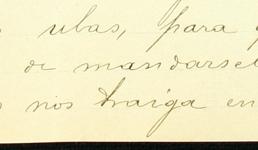 s ubas, para q
de mandarsel
s nos traiga en